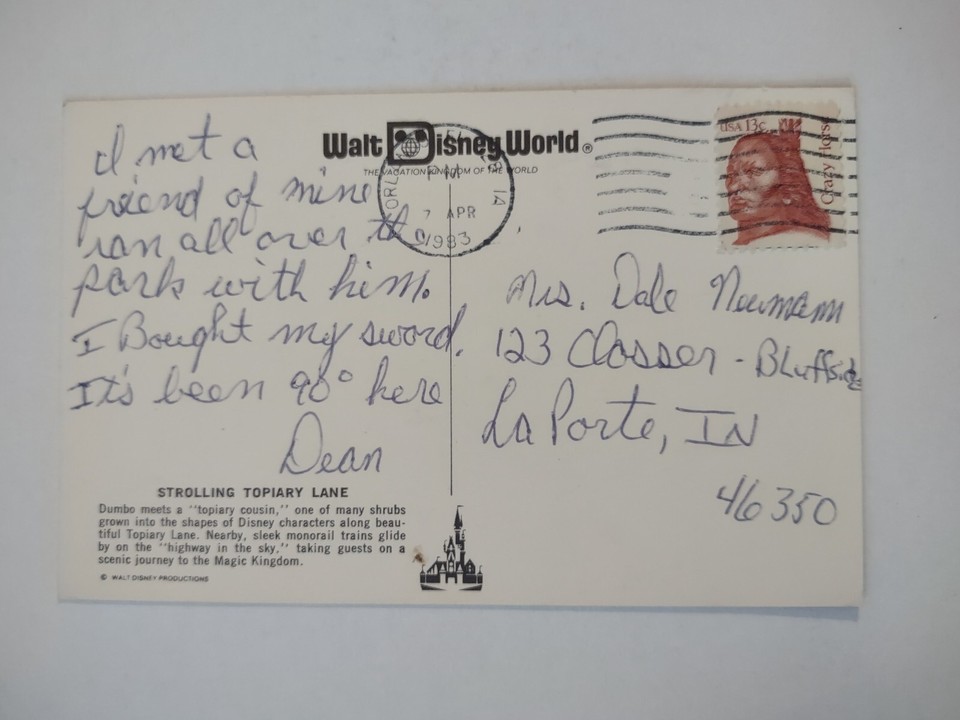 I met a
friend of mine
ran all over the
park with him.
I Bought my sword.
It's been 90° here
Dean
STROLLING TOPIARY LANE
Dumbo meets a "topiary cousin," one of many shrubs
grown into the shapes of Disney characters along beau-
tiful Topiary Lane. Nearby, sleek monorail trains glide
by on the "highway in the sky," taking guests on a
scenic journey to the Magic Kingdom.
© WALT DISNEY PRODUCTIONS
Walt Disney World®
THE VACATION KINGDOM OF THE WORLD
PM
7 APR
1983
USA 13c
Crazy Horse
Mrs. Dale Newmann
123 Closser - Bluffside
La Porte, IN
46350